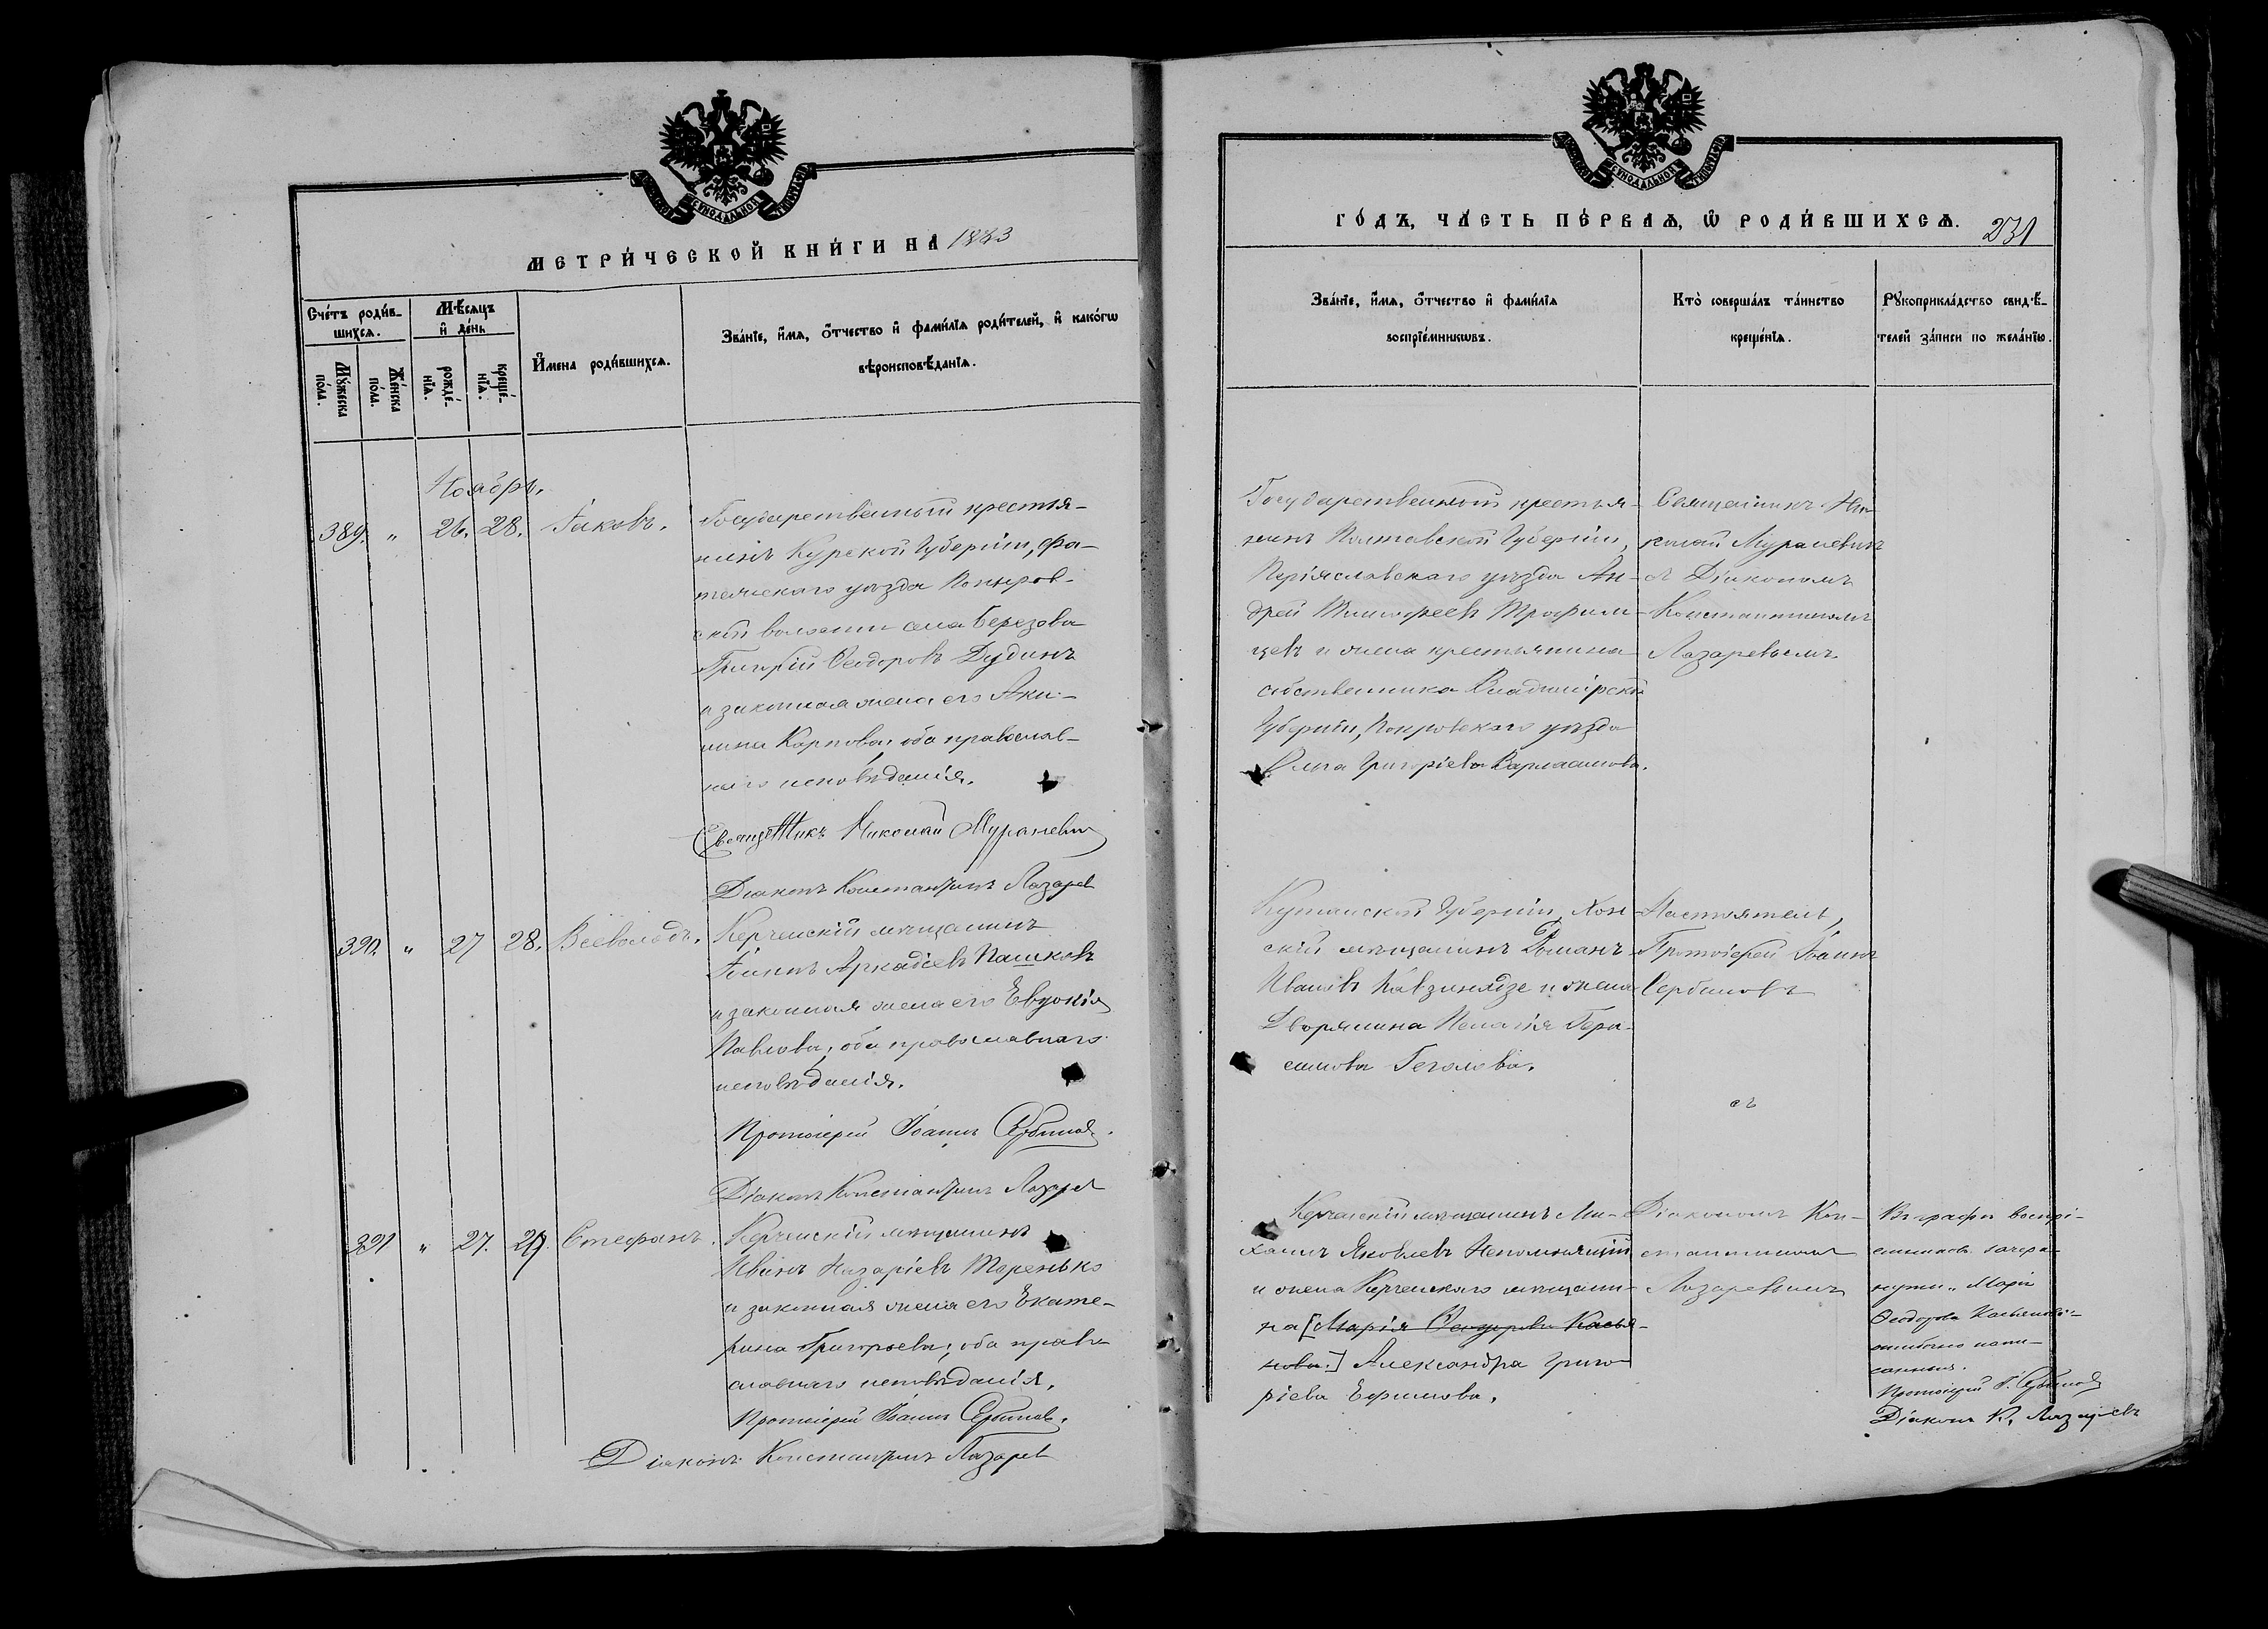 МЕТРИ́ЧЕСКОЙ КНИ́ГИ НА 1883
Сче́тъ роди́в-
шихсѧ.
Мꙋ́жеска
по́ла.
Же́нска
по́ла.
Мѣ́сѧцъ
и҆ де́нь
рожде́-
нїѧ.
креще́-
нїѧ.
И҆мена роди́вшихсѧ.
Зва́нїе, и҆́мѧ, о҆́тчество и҆ фамі́лїѧ роди́телей, и҆ како́гѡ
вѣроисповѣ́данїѧ.
Ноябрь.
389. " 26. 28. Іаковъ.
Государственный крестья-
нинъ Курской Губерніи, Фа-
тежскаго уѣзда Поныров-
ской волости села Березова
Григорій Ѳеодоровъ Дудинъ
и законная жена его Аки-
лина Карпова, оба православ-
наго исповѣданія.
Священникъ Николай Мураневич
Діаконъ Константинъ Лазарев
390. " 27 28. Всеволодъ.
Керченскій мѣщанинъ
Іоаннъ Аркадіевъ Пашковъ
и законная жена его Евдокія
Павлова, оба православнаго
исповѣданія.
Протоіерей Іоаннъ Сербинов.
Діаконъ Константинъ Лазарев
391 " 27. 29. Стефанъ.
Керченскій мѣщанинъ
Иванъ Назаріевъ Теренько
и законная жена его Екате-
рина Григорьева; оба право-
славнаго исповѣданія.
Протоіерей Іоаннъ Сербинов.
Діаконъ Константинъ Лазарев
ГО́ДЪ, ЧА́СТЬ ПЕ́РВАѦ, Ѡ҆ РОДИ́ВШИХСѦ.
231
Зва́нїе, и҆́мѧ, о҆́тчество и҆ фамі́лїѧ
воспрїе́мникѡвъ.
Кто̀ соверша́лъ та́инство
креще́нїѧ.
Рꙋкоприкла́дство свидѣ́-
телей за́писи по жела́нїю.
Государственный крестья-
нинъ Полтавской Губерніи,
Періяславскаго уѣзда Ан-
дрей Тимофеевъ Трофим-
цевъ и жена крестьянина
собственника Владимірской
Губерніи, Покровскаго уѣзда
Ольга Григоріева Варламова.
Священникъ Ни-
колай Мураневичъ
съ Діакономъ
Константиномъ
Лазаревымъ
Кутаиской Губерніи, Хон-
скій мѣщанинъ Романъ
Ивановъ Кавзинядзе и жена
Дворянина Пелагія Гера-
симова Гоголева.
Настоятель,
Протоіерей Іоаннъ
Сербиновъ
съ
Керченскій мѣщанинъ Ми-
хаилъ Яковлевъ Непомнящій
и жена Керченскаго мѣщани-
на [Марія Ѳеодорова Касья-
нова.] Александра Григо-
ріева Ефимова.
Діакономъ Кон-
стантиномъ
Лазаревымъ
Въ графѣ воспрі-
емниковъ зачерк-
нуты „Марія
Ѳеодорова Касьянова"
ошибочно напи-
санныя.
Протоіерей І. Сербинов
Діаконъ К. Лазаревъ